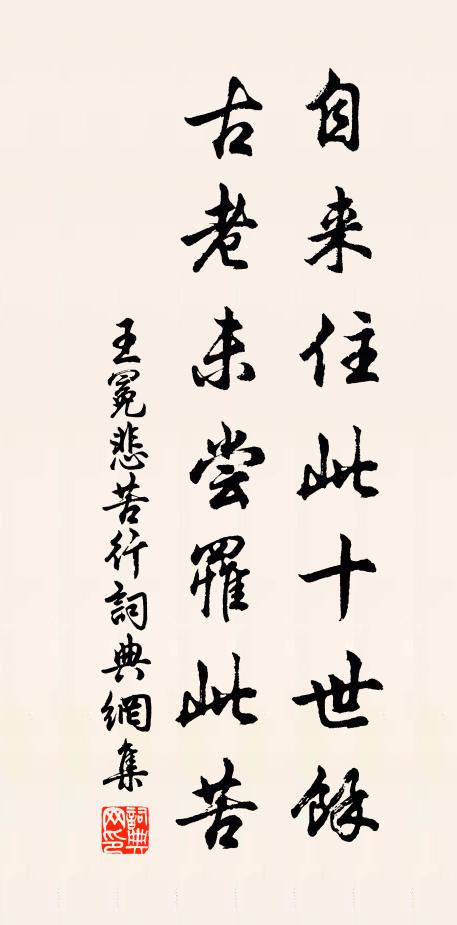 自来住此十世餘
古老未尝罹此苦
王冕悲苦行詞典網集
詞典网印